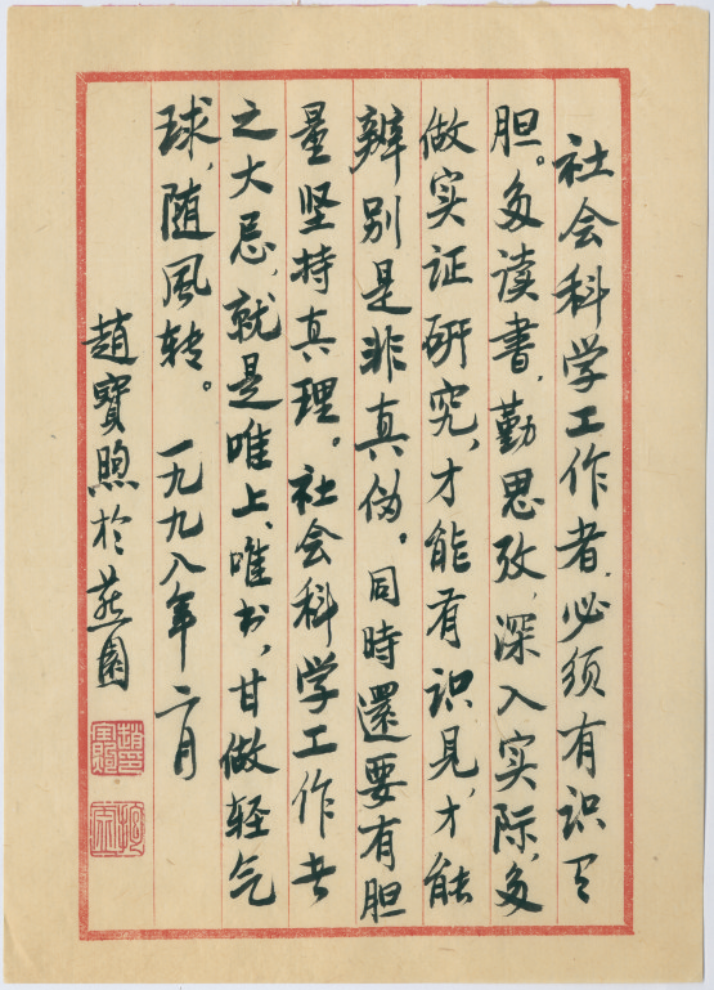 社会科学工作者,必须有识有
胆。多读书,勤思考,深入实际,多
做实证研究,才能有识见,才能
辨别是非真伪。同時還要有胆
量坚持真理。社会科学工作者
之大忌,就是唯上、唯书,甘做轻气
球,随風转。一九九八年二月
趙寶煦於燕園